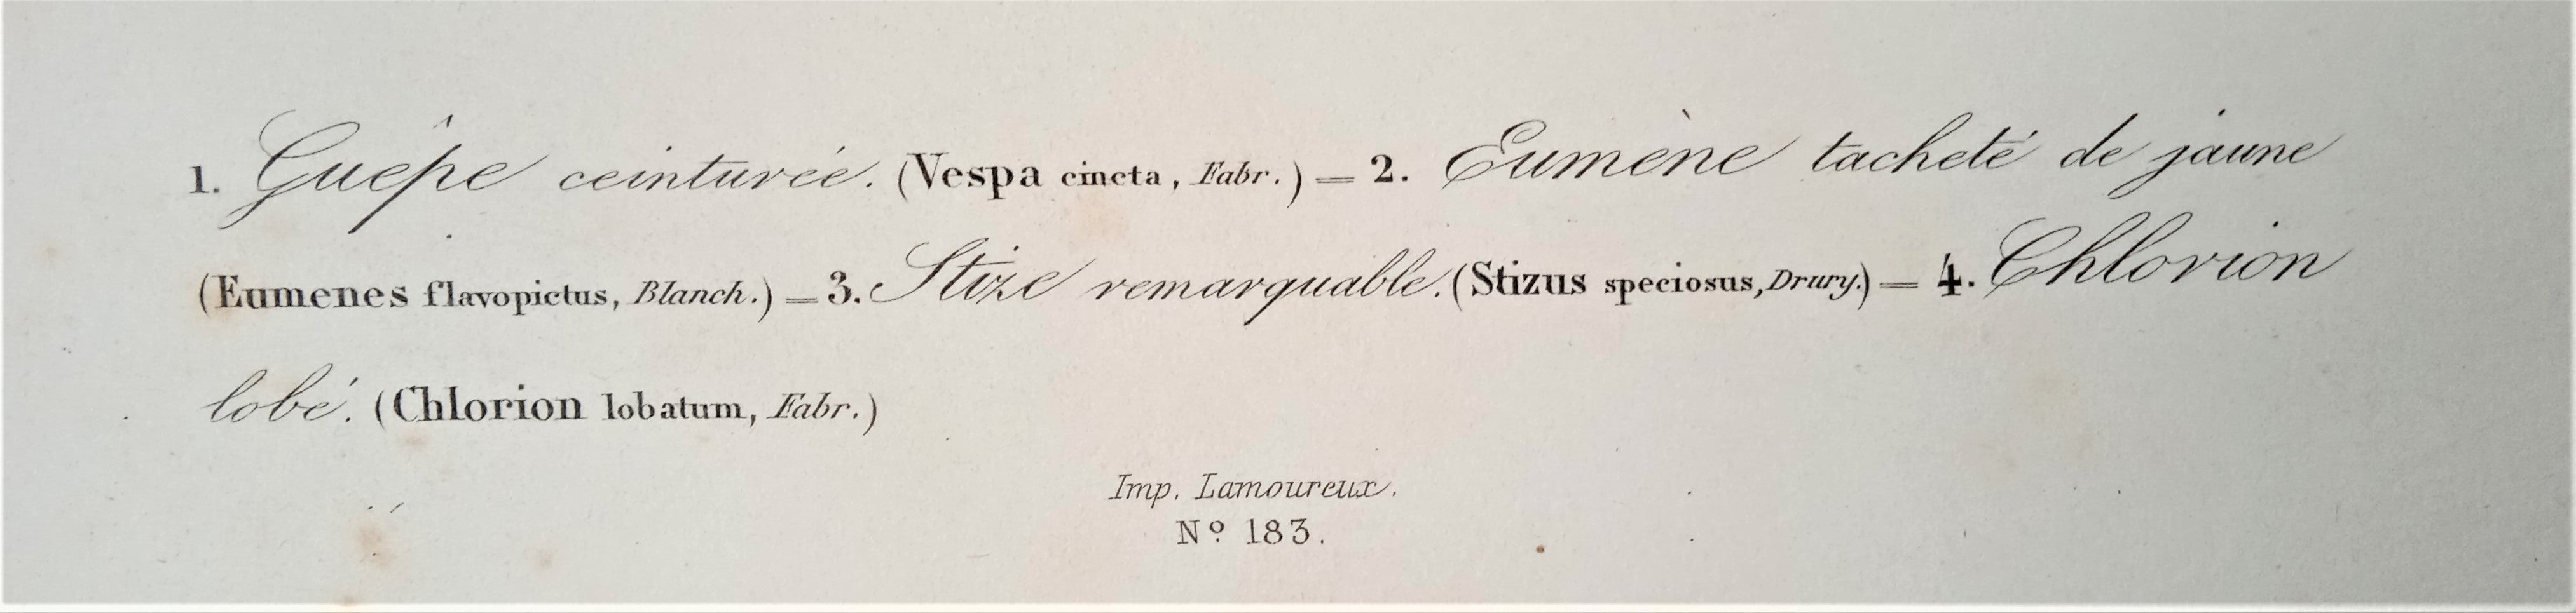 1. Guêpe ceinturée. (Vespa cincta, Fabr.) = 2. Eumène tacheté de jaune
(Eumenes flavopictus, Blanch.) = 3. Stize remarquable. (Stizus speciosus, Drury.) = 4. Chlorion
lobé. (Chlorion lobatum, Fabr.)
Imp. Lamoureux.
Nº 183.